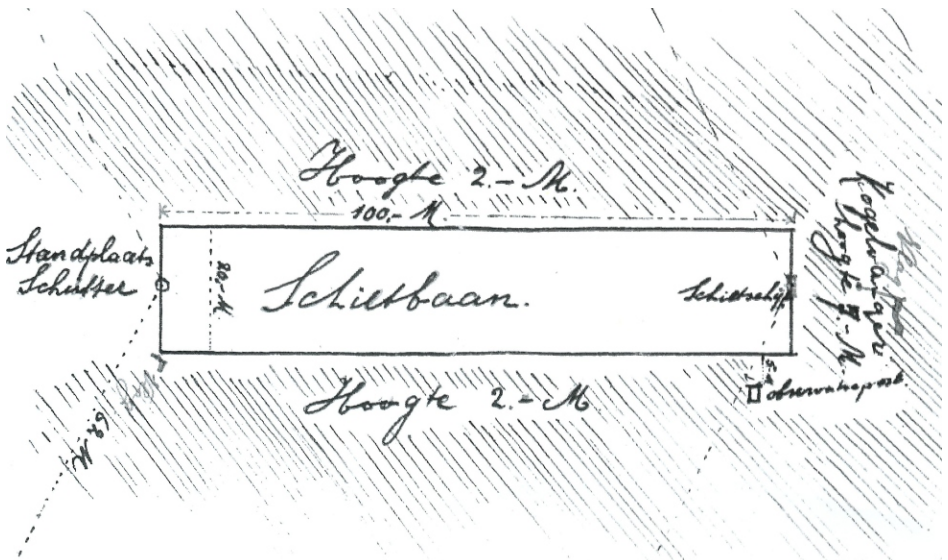 Hoogte 2.- M.
100,- M.
Standplaats
Schutter
20,- M
Schietbaan.
Schietschijf
Kogelvanger
Hoogte 7.- M.
5 M
observatiepost
Hoogte 2.- M
62 M